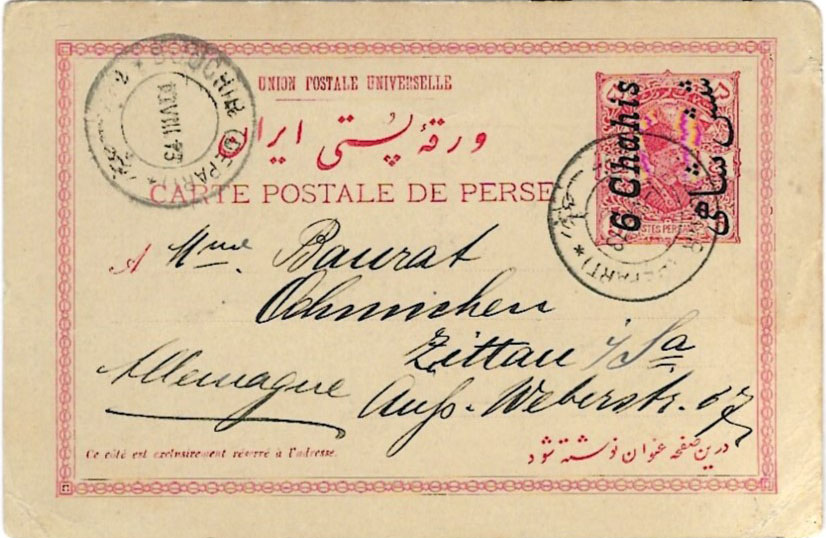 UNION POSTALE UNIVERSELLE
ورقهٔ پُستی ایران
CARTE POSTALE DE PERSE
6 Chahis
شش شاهی
BOUCHIR (DEPART)
A Mme. Baurat
Oehmichen
Zittau i/Sa
Allemagne
Äuss. Weberstr. 67
Ce côté est exclusivement réservé à l'adresse.
درین صفحه عنوان نوشته شود